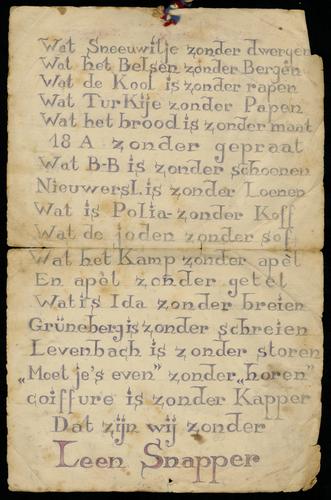 Wat Sneeuwitje zonder dwergen
Wat het Belsen zonder Bergen
Wat de Kool is zonder rapen
Wat Turkije zonder Papen
Wat het brood is zonder maat
18 A zonder gepraat
Wat B-B is zonder schoenen
Nieuwersl. is zonder Loenen
Wat is Polia zonder Koff
Wat de joden zonder sof
Wat het Kamp zonder apèl
En apèl zonder getèl
Wat is Ida zonder breien
Grüneberg is zonder schreien
Levenbach is zonder storen
„Moet je's even" zonder „horen"
coiffure is zonder Kapper
Dat zijn wij zonder
Leen Snapper